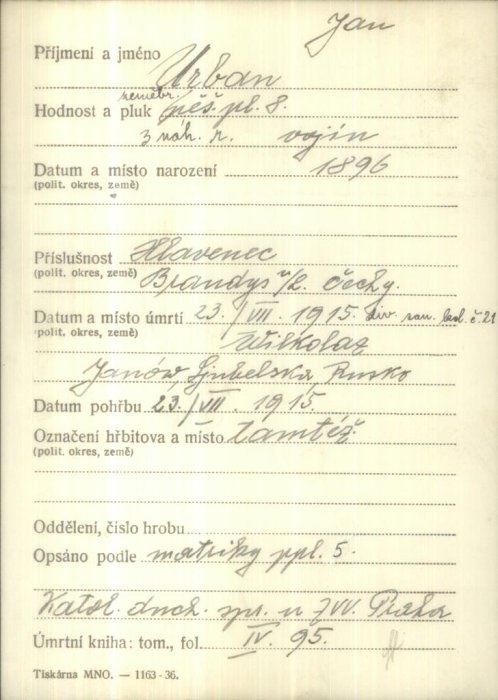 Jan
Příjmení a jméno Urban
zeměbr.
Hodnost a pluk pěš. pl. 8.
3 náh. r. vojín
Datum a místo narození 1896
(polit. okres, země)
Příslušnost Hlavenec
(polit. okres, země) Brandýs n/L. Čechy.
Datum a místo úmrtí 23./VII. 1915. Div. san. kol. č. 21
(polit. okres, země) Wilkolaz
Janów, Ljubelska, Rusko
Datum pohřbu 23./VII. 1915.
Označení hřbitova a místo tamtéž.
(polit. okres, země)
Oddělení, číslo hrobu
Opsáno podle matriky ppl. 5.
Katol. duch. spr. u ZVV. Praha
Úmrtní kniha: tom., fol. IV. 95.
Tiskárna MNO. — 1163-36.